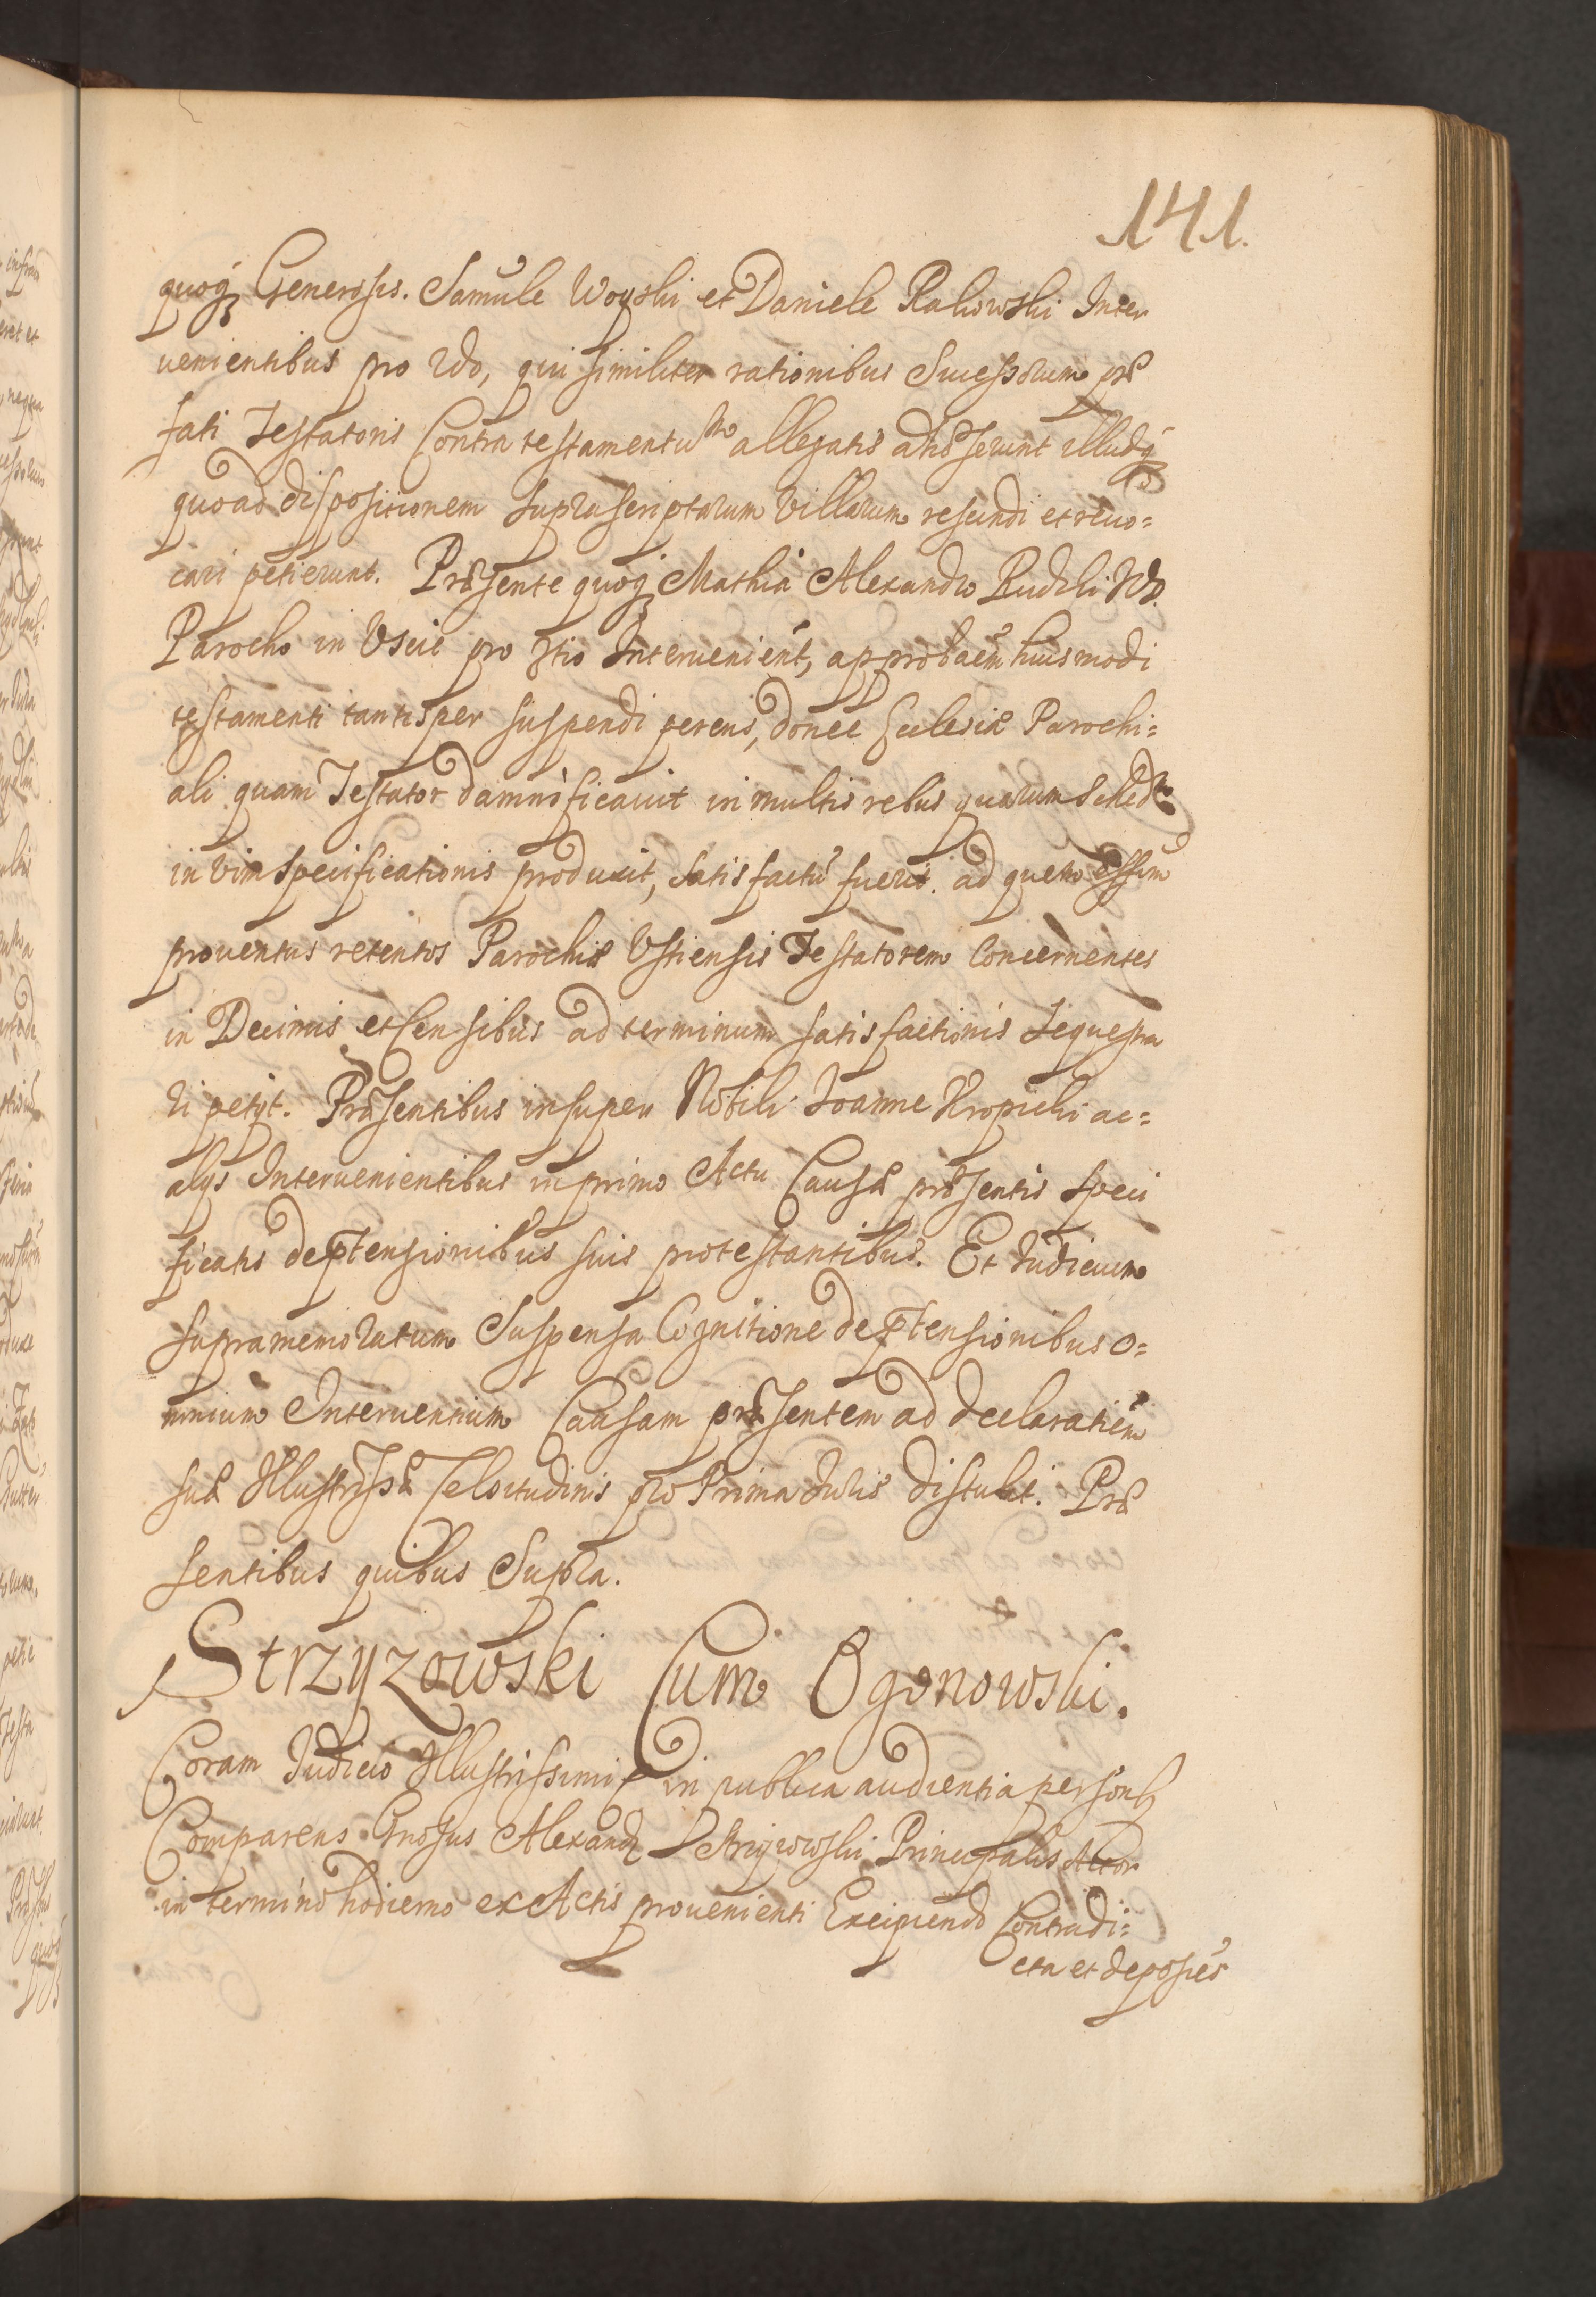 141.
quoq Generosis. Samuele Woyski et Daniele Rakowski Inter
uenientibus pro 2do, qui similiter rationibus Sucessorum præ
fati Testatoris Contra testamentum allegatis adhæserunt illudq
quoad dispositionem supra scriptarum Villarum rescindi et reuo=
cari petierunt. Præsente quoq Mathia Alexandro Rudzki
Parocho in Uscie pro 3tio Interuenient, approbaem huiusmodi
testamenti tantisper suspendi petens, donec Eclesiæ Parochi=
ali quam Testator damnificauit in multis rebus quarum Schedam
in vim specificationis produxit, satisfactu fuerit. ad quem effum
prouentus retentos Parochiæ Ustiensis Testatorem Concernentes
in Decimis et Censibus ad terminum satisfactionis sequestra
ri petyt. Præsentibus insuper Nobili Ioanne Kropicki ac=
alys Interuenientibus in primo Actu Causæ præsentis speci
ficatis de prtensionibus suis protestantibus. Et Iudicium
supra memoratum Suspensa Cognitione de prtensionibus o=
mnium Interuentium Causam præsentem ad declaratiem
suæ Illustrissæ Celsitudinis pro Prima Iuris distulit. Præ
sentibus quibus Supra.
Strzyzowski Cum Ogonowski.
Coram Iudicio Illustrissimi in publica audientia personlr
Comparens Gnosus Alexandr Strzyzowski Principalis Actor
in termino hodierno ex Actis prouenienti Excipiendo Contradi=
cta et deposies